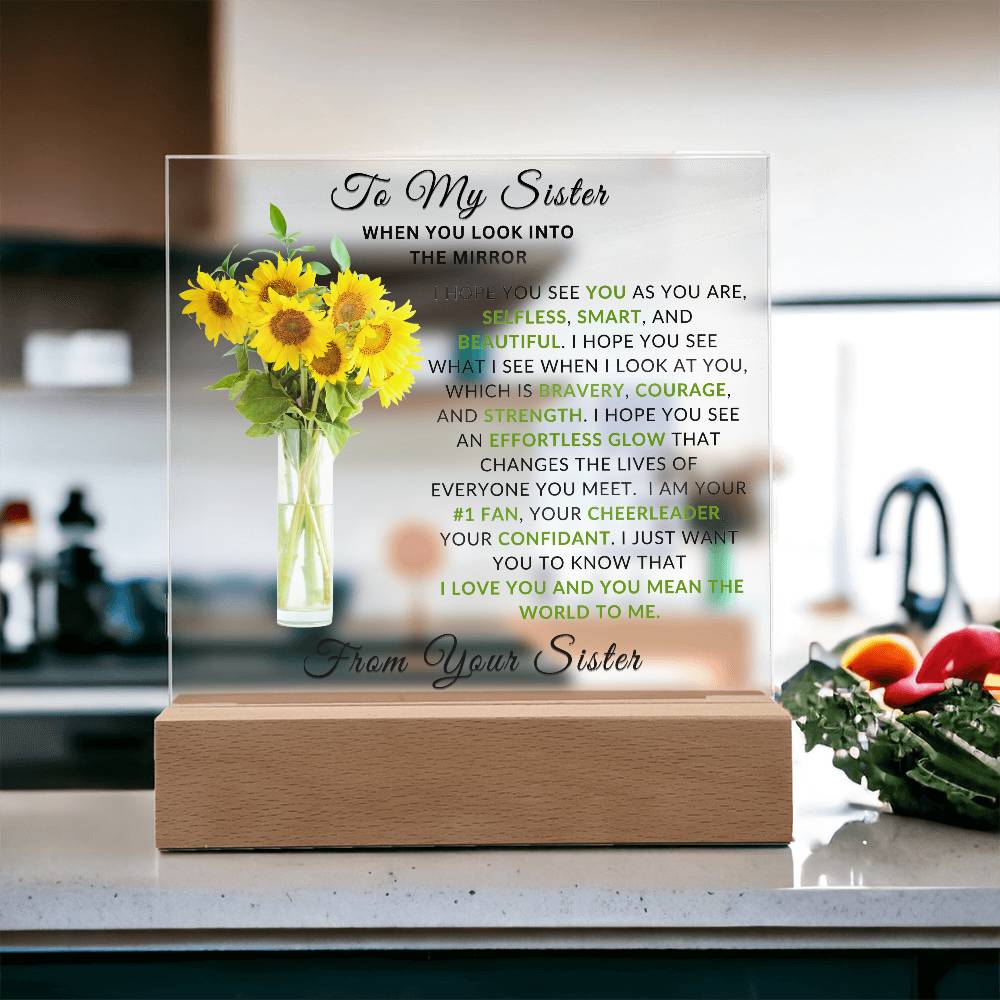 To My Sister
WHEN YOU LOOK INTO
THE MIRROR
I HOPE YOU SEE YOU AS YOU ARE,
SELFLESS, SMART, AND
BEAUTIFUL. I HOPE YOU SEE
WHAT I SEE WHEN I LOOK AT YOU,
WHICH IS BRAVERY, COURAGE,
AND STRENGTH. I HOPE YOU SEE
AN EFFORTLESS GLOW THAT
CHANGES THE LIVES OF
EVERYONE YOU MEET. I AM YOUR
#1 FAN, YOUR CHEERLEADER
YOUR CONFIDANT. I JUST WANT
YOU TO KNOW THAT
I LOVE YOU AND YOU MEAN THE
WORLD TO ME.
From Your Sister